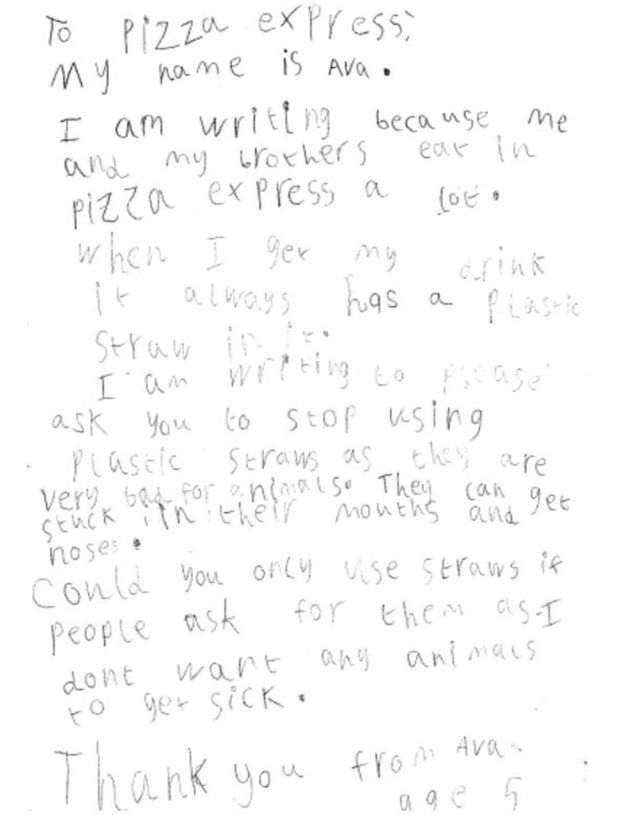 To Pizza express,
My name is Ava.
I am writing because me
and my brothers eat in
pizza express a lot.
When I get my drink
it always has a plastic
straw in it.
I am writing to please
ask you to stop using
plastic straws as they are
very bad for animals. They can get
stuck in their mouths and
noses.
Could you only use straws if
people ask for them as I
dont want any animals
to get sick.
Thank you from Ava
age 5